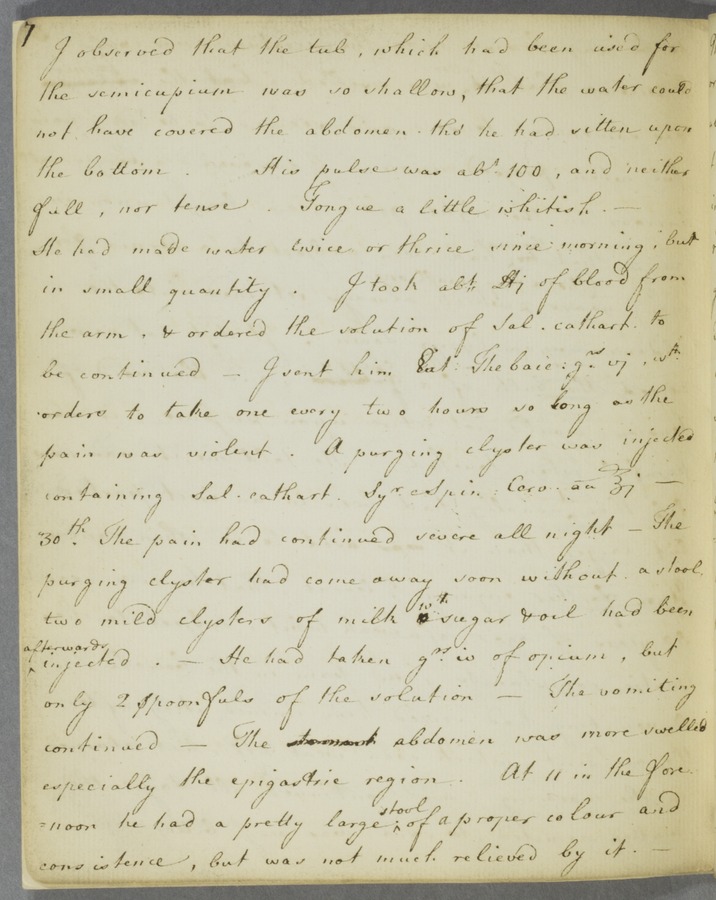 7
I observed that the tub, which had been used for
the semicupium was so shallow, that the water could
not have covered the abdomen tho' he had sitten upon
the bottom. His pulse was abt 100, and neither
full, nor tense. Tongue a little whitish. —
He had made water twice or thrice since morning, but
in small quantity. I took abt ℔j of blood from
the arm, & ordered the solution of Sal. cathart. to
be continued — I sent him Thebaic: grs vj, wth
orders to take one every two hours so long as the
pain was violent. A purging clyster was injected
containing Sal. cathart. Syr. e Spin. Cerv. aa ℥j —
30th. The pain had continued severe all night — The
purging clyster had come away soon without a stool.
two mild clysters of milk wth sugar & oil had been
afterwards
injected. — He had taken grs iv of opium, but
only 2 spoonfuls of the solution — The vomiting
continued — The abdomen was more swelled
especially the epigastric region. At 11 in the fore
=noon he had a pretty large stool of a proper colour and
consistence, but was not much relieved by it. —